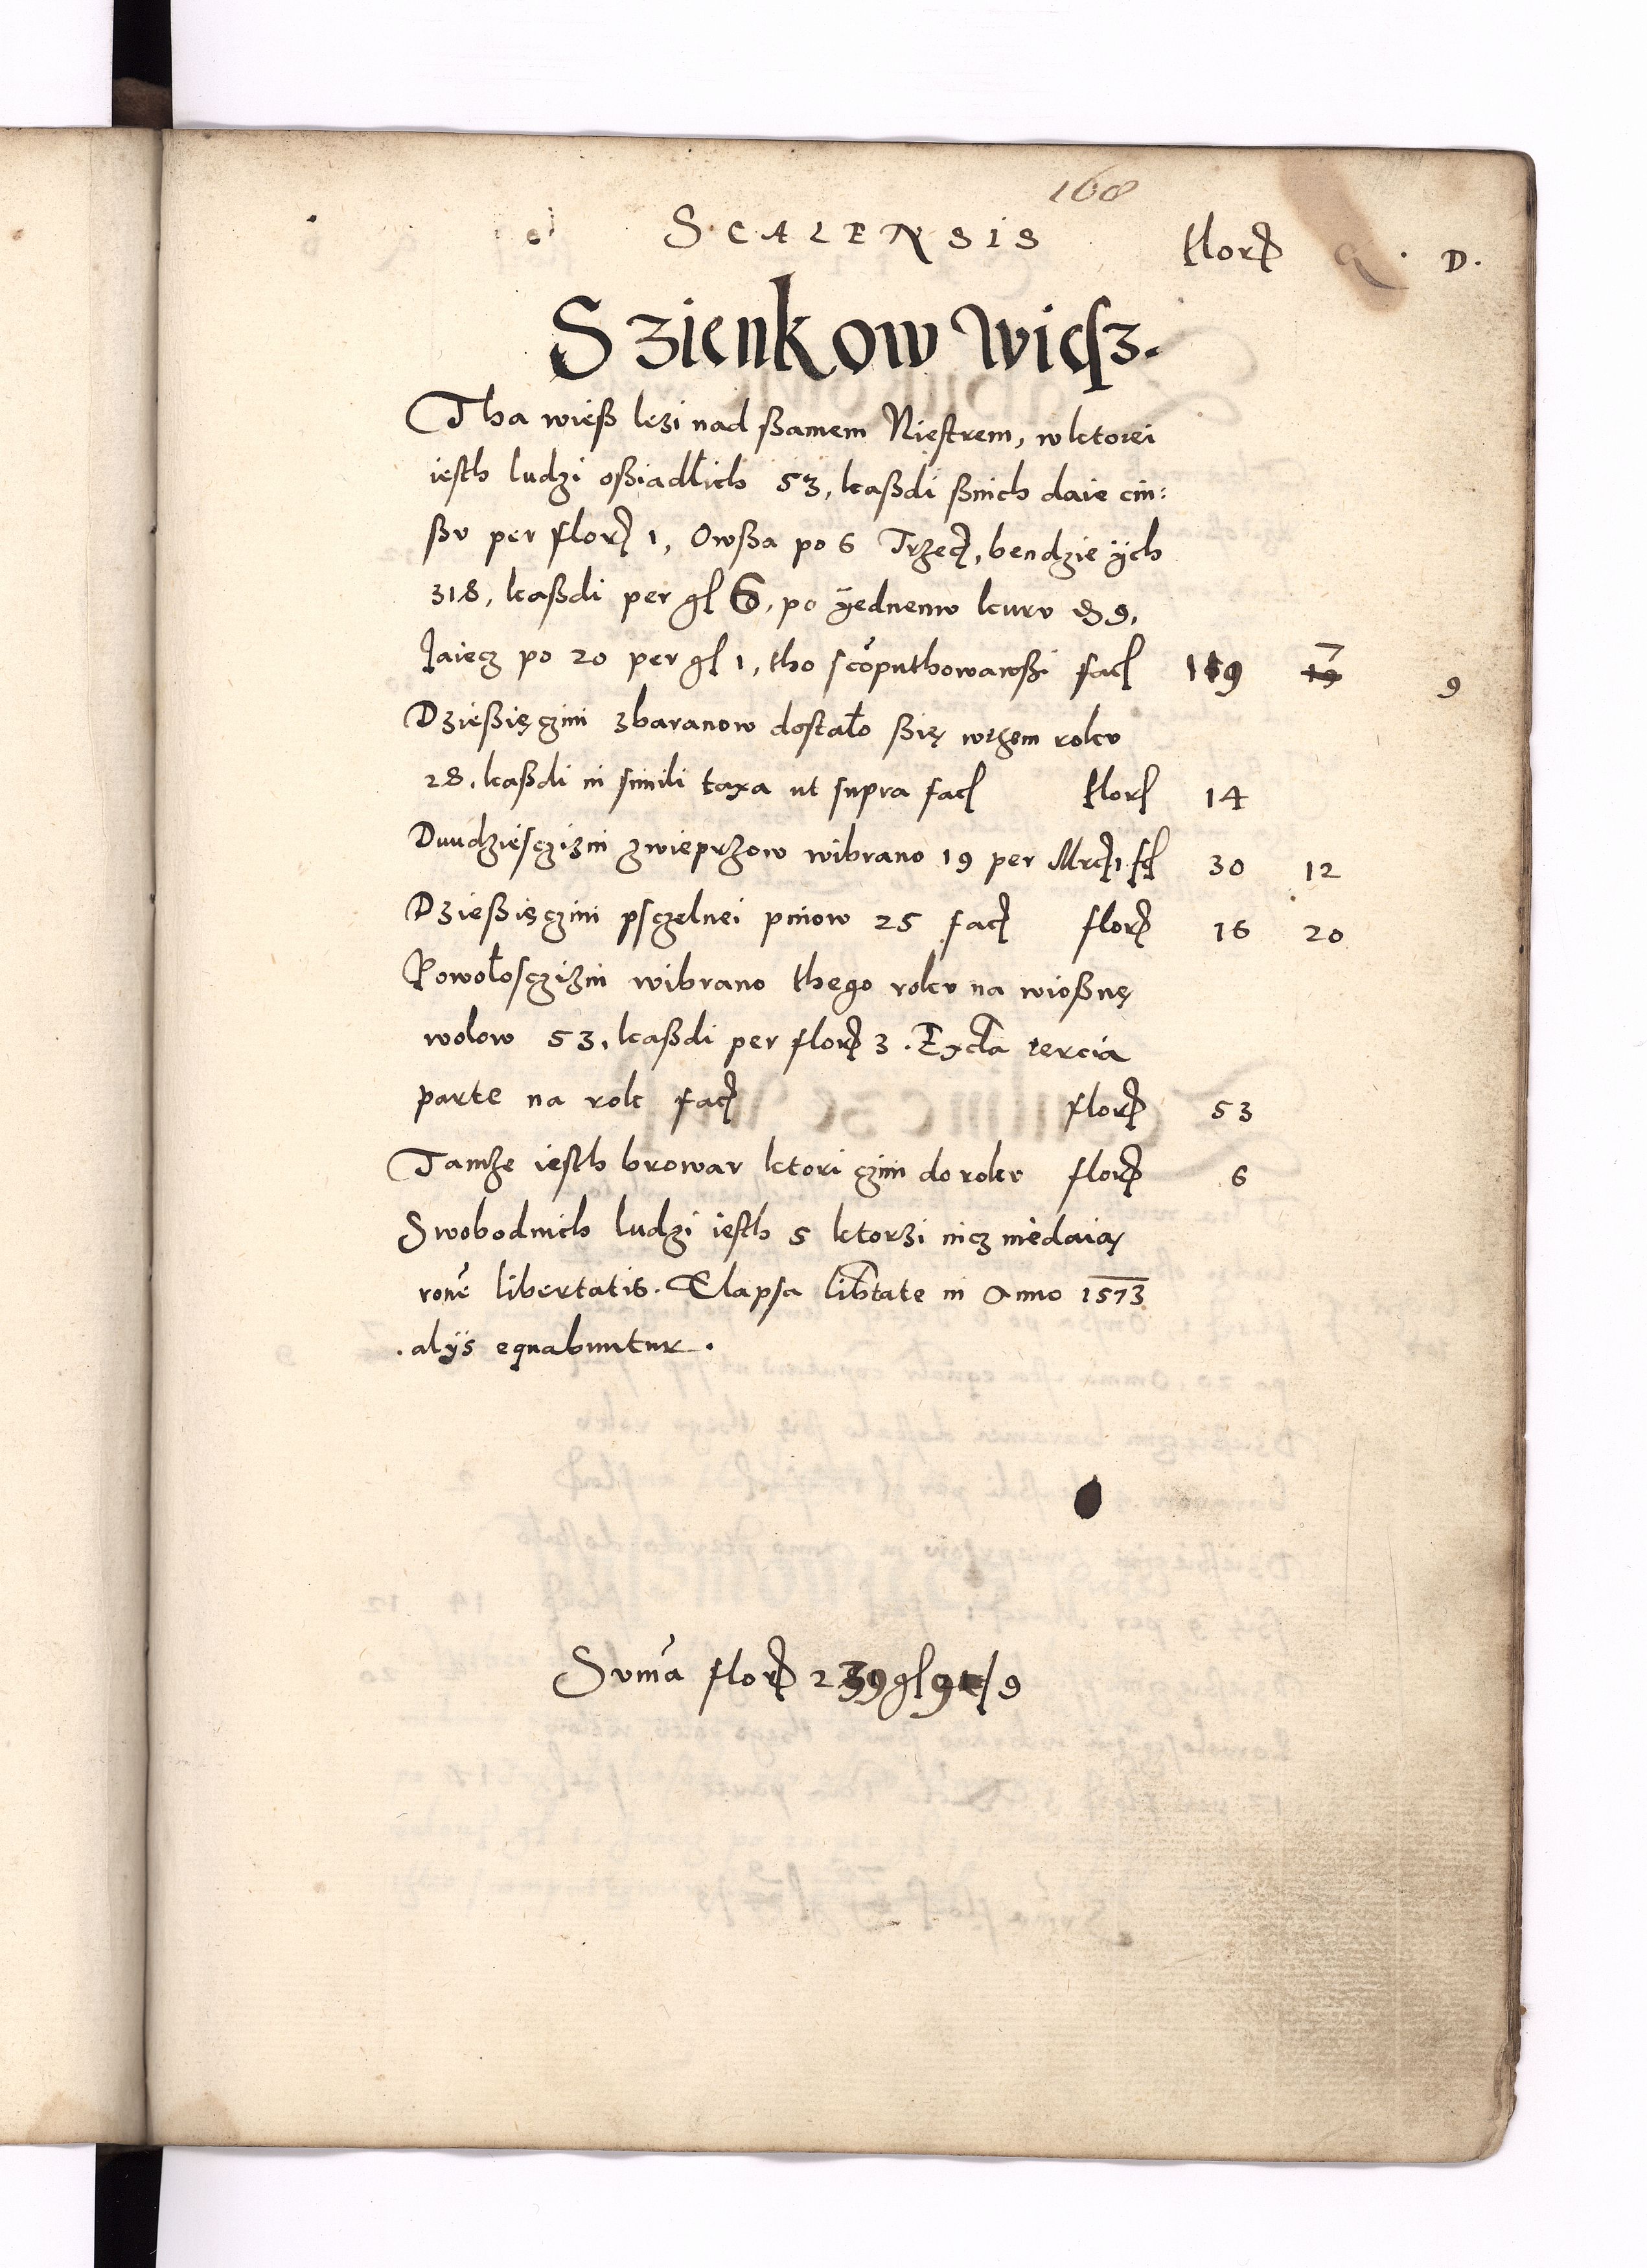 168
SCALENSIS florꝭ G. D.
Szienkow Wiesz.
Tha wieß lezi nad ßamem Niestrem, w ktorei
iesth ludzi oßiadlich 53, kaßdi ßnich daie cin:
ßv per florꝭ 1, Owßa po 6 Trzecꝭ, bendzie ÿch
318, kaßdi per gl 6, po ÿednemv kurv 9,
Jaiecz po 20 per gl 1, tho scoputhowawßi facꝭ 159 17 9
Dzießięczini zbaranow dostało ßię wthem rokv
28, kaßdi in simili taxa ut supra facꝭ florꝭ 14
Dwudziesczizni zwieprzow wibrano 19 per Mrcꝭ 1 fcꝭ 30 12
Dzießięczini psczelnei pniow 25 facꝭ florꝭ 16 20
Powołosczizni wibrano thego rokv na wioßnę
wolow 53, kaßdi per florꝭ 3. Excta tercia
parte na rok facꝭ florꝭ 53
Tamże iesth browar ktori czini do rokv florꝭ 6
Swobodnich ludzi iesth 5 ktorzi nicz niedaią
rone libertatis. Elapsa libtate in Anno 1573
. alÿs equabuntur.
Suma florꝭ 239 gl 9 9